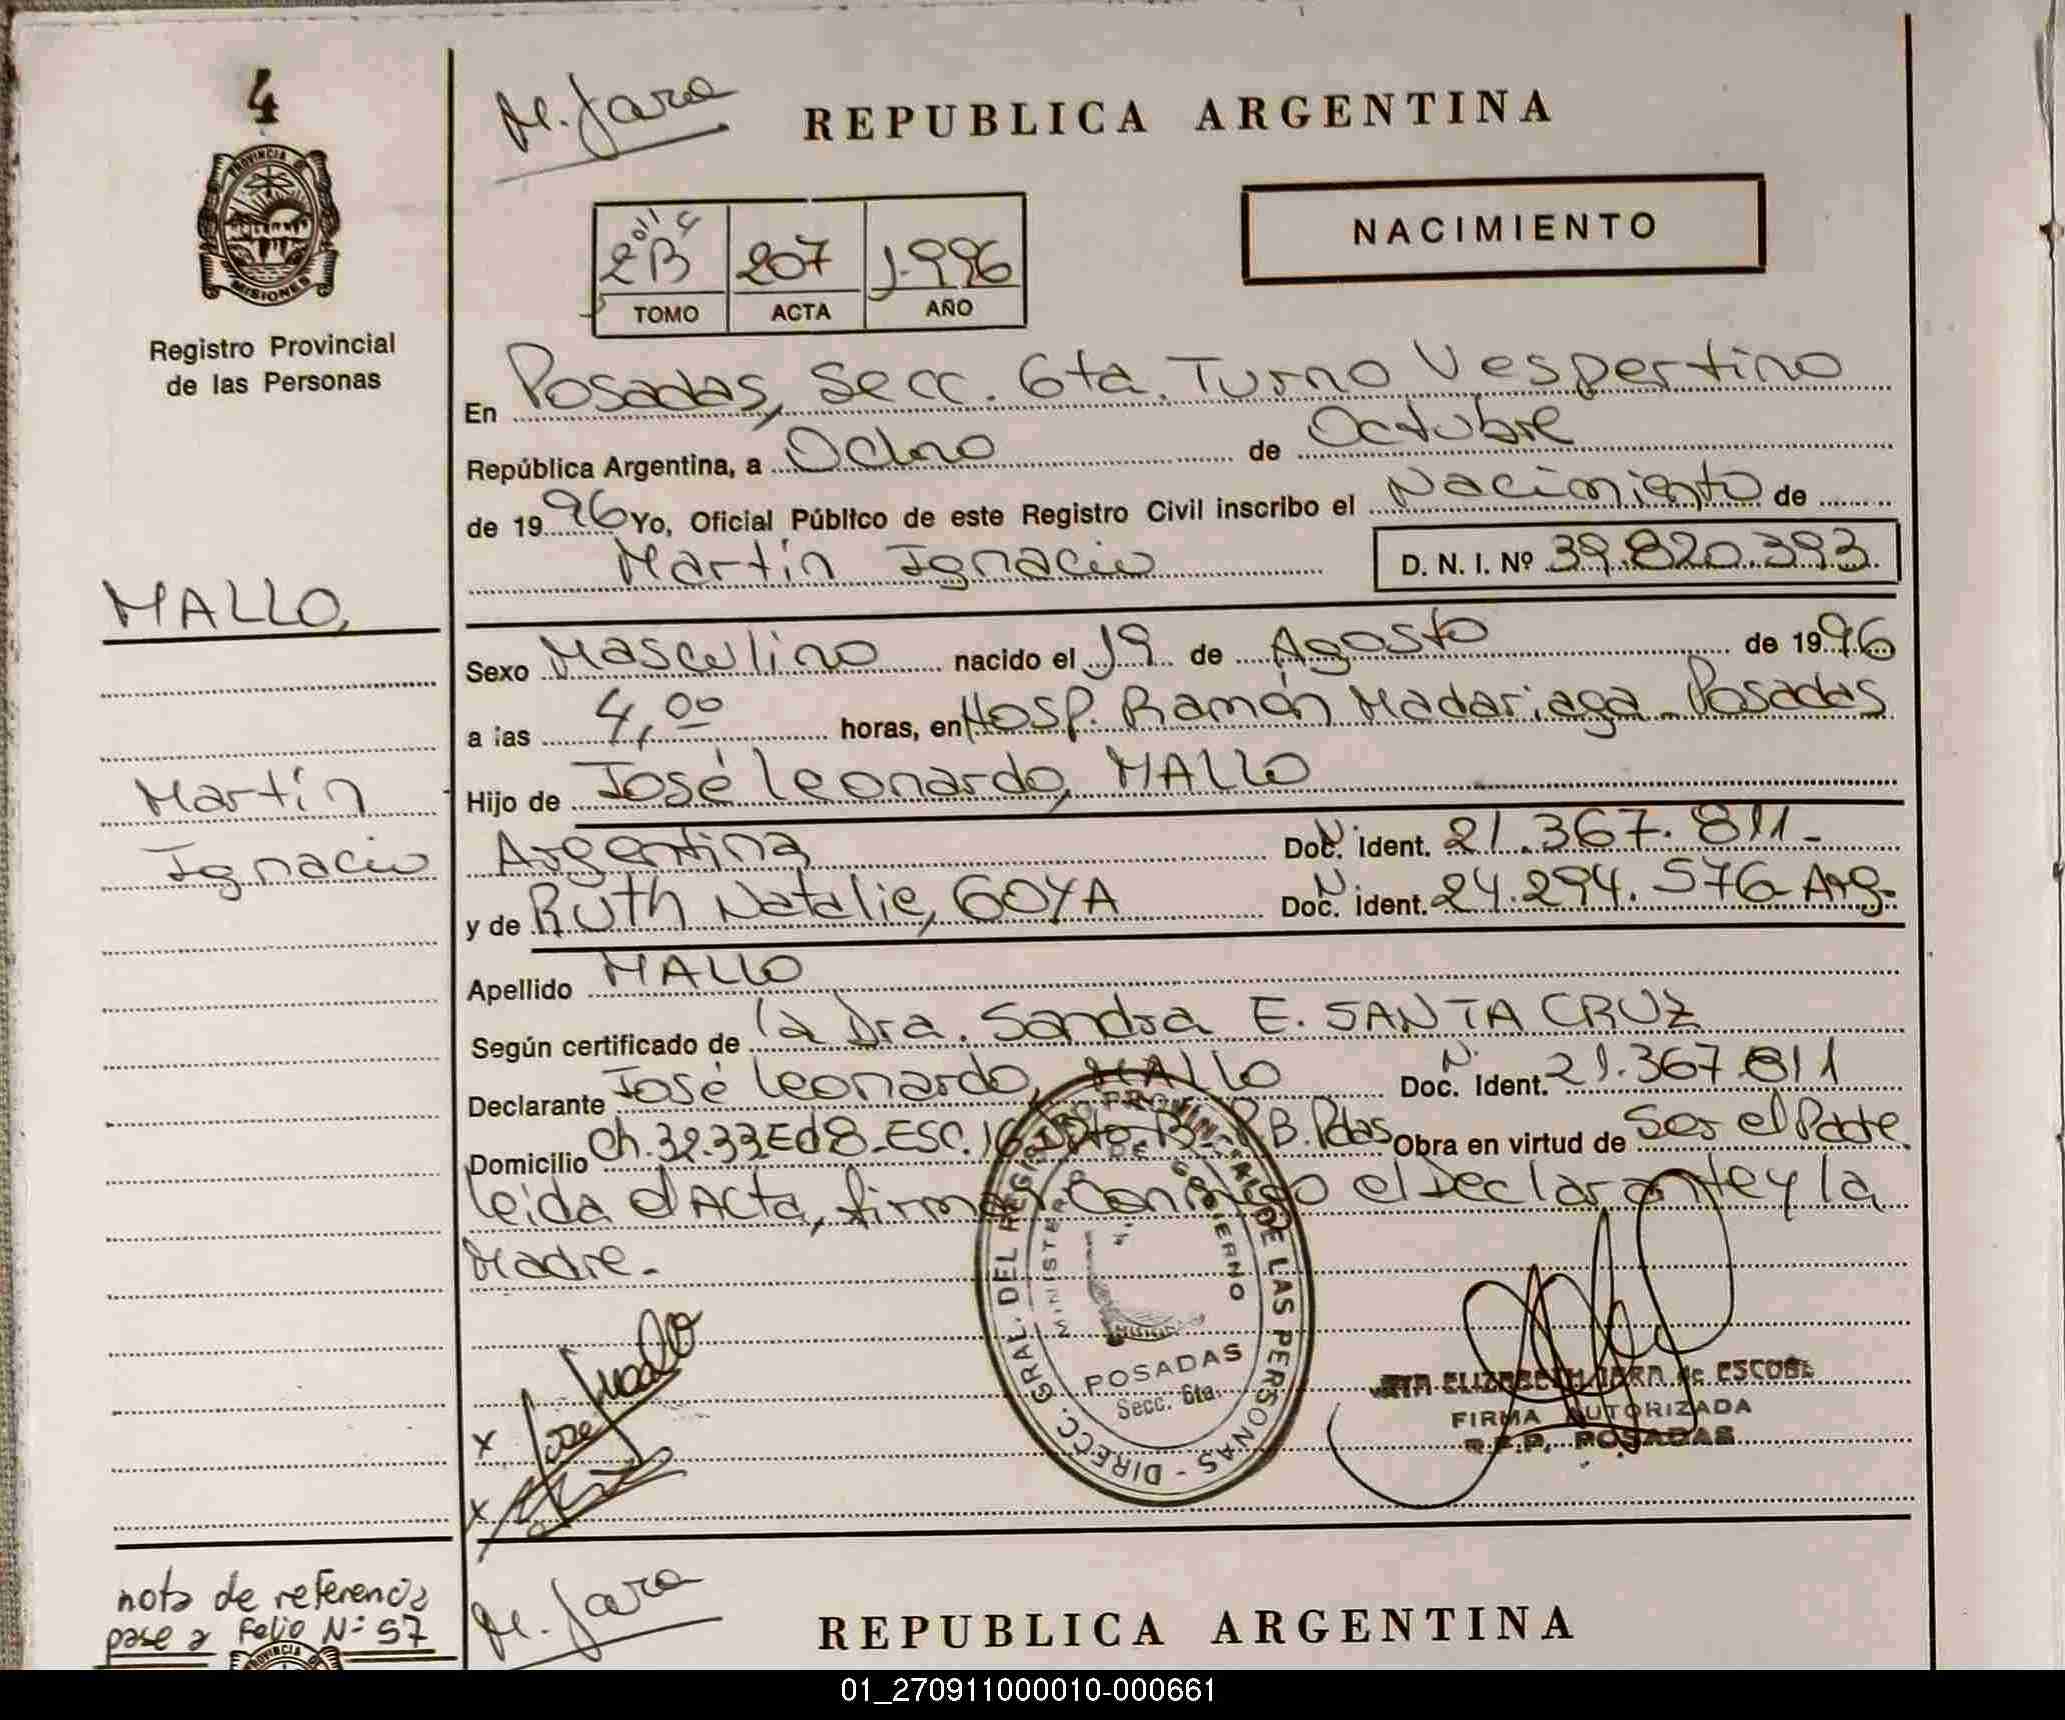 4
M. Jara
REPUBLICA ARGENTINA
PROVINCIA DE
MISIONES
NACIMIENTO
2ºB 207 1.996
TOMO ACTA AÑO
Registro Provincial
de las Personas
En Posadas, Secc. 6ta. Turno Vespertino
República Argentina, a Ocho de Octubre
de 1996 Yo, Oficial Público de este Registro Civil inscribo el Nacimiento de
Martín Ignacio D. N. I. Nº 39.820.393.
MALLO,
Martín
Ignacio
Sexo Masculino nacido el 19 de Agosto de 1996
a las 4,00 horas, en Hosp. Ramón Madariaga - Posadas
Hijo de José Leonardo, MALLO
Argentina Doc. Ident. 21.367.811.-
y de Ruth Natalie, GOYA Doc. Ident. 24.294.576 Arg.
Apellido MALLO
Según certificado de la Dra. Sandra E. SANTA CRUZ
Declarante José Leonardo, MALLO Doc. Ident. 21.367.811
Domicilio Ch. 32.33 Ed 8 - ESC. 16 Dpto B P.B. Pdas Obra en virtud de Ser el Padre
leida el Acta, firman Conmigo el Declarante y la
Madre.-
DIRECC. GRAL. DEL REGISTRO PROVINCIAL DE LAS PERSONAS
MINISTERIO DE GOBIERNO
POSADAS
Secc. 6ta.
x José Mallo
x
ELIZABETH JARA de ESCOB
FIRMA AUTORIZADA
R.P.P. POSADAS
nota de referencia
pase a Folio Nº 57
PROVINCIA
M. Jara
REPUBLICA ARGENTINA
01_270911000010-000661